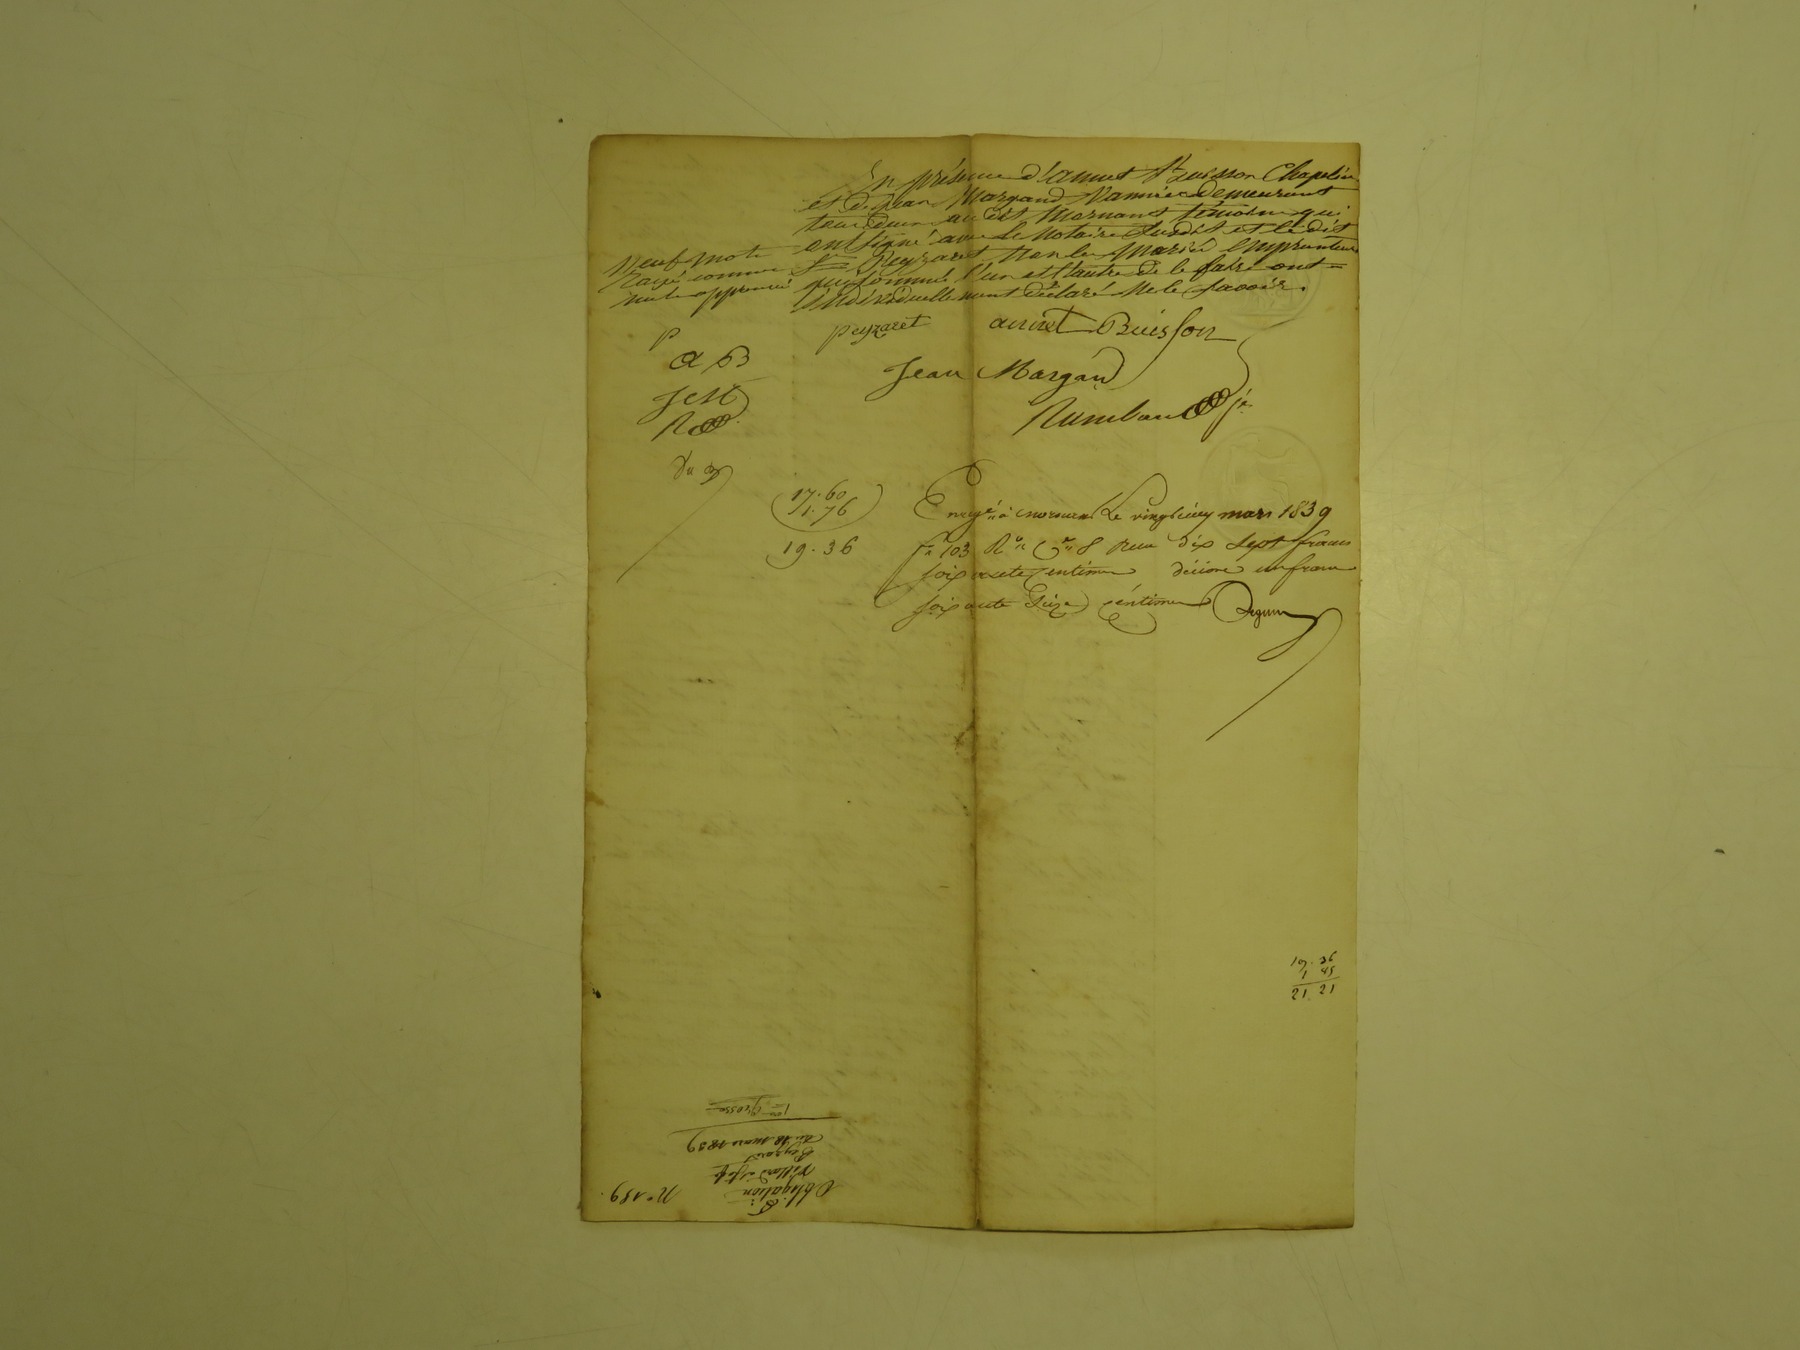 En présence d'annet Buisson Chapelier
et de Jean Margand Vannier demeurant
tous deux au dit Mornant témoins qui
ont signé avec le Notaire susdit et le dit
Sr Peyzaret non les mariés emprunteurs
qui sommés l'un et l'autre de le faire ont
individuellement déclaré ne le savoir.
Neuf mots
Rayé comme
nuls approuvé
P
a B
Jean Margand
peyzaret
annet Buisson
17.60
1.76
19.36
Enregé à mornant Le vingt cinq mars 1839
fo 103 Ro Ce 8 reçu dix sept francs
soixante centimes décime un franc
soixante seize centimes
19.36
1 85
21.21
No 189.
Obligation
Villard
Peyzaret
du 18 mars 1839
1ere Grosse